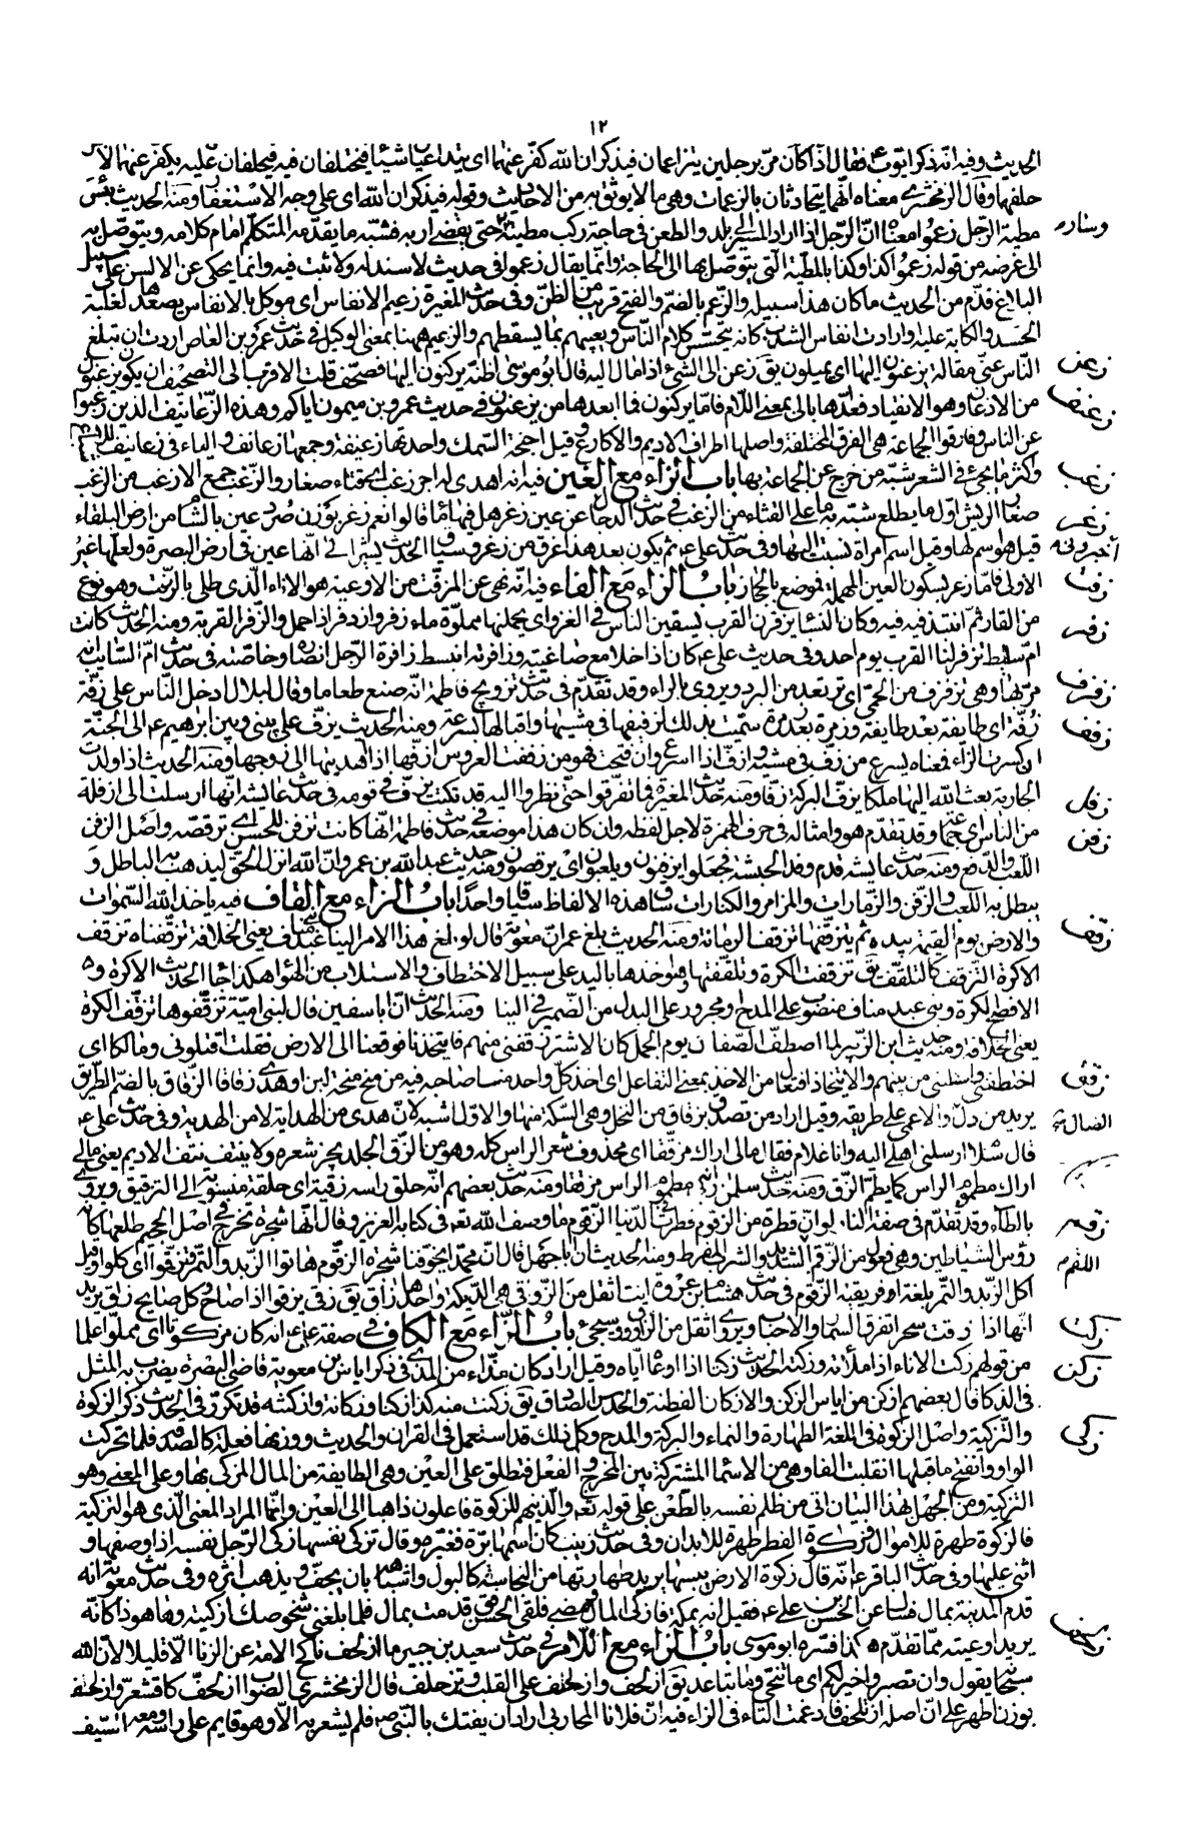 ١٢
الحديث وفيه انه ذكر ايوب ع فقال اذا كان مرّ برجلين يتزاعمان فيذكران الله كفّر عنهما اى يتداعيان شيئا فيختلفان فيه فيحلفان عليه يكفّر عنهما لاجل
حلفهما وقال الزمخشرى معناه انهما يتحادثان بالزعمات وهى ما لا يوثق به من الاحاديث وقوله فيذكران الله اى على وجه الاستغفار ومنه الحديث بئس
مطية الرّجل زعموا معناه انّ الرّجل اذا اراد المسير الى بلد والطعن فى حاجة ركب مطيته حتى يقضى اربه فشبّه ما يقدّمه المتكلّم امام كلامه ويتوصّل به
الى غرضه من قوله زعموا كذا وكذا بالمطيّة الّتى يتوصّل بها الى الحاجة وانّما يقال زعموا فى حديث لا سند له ولا ثبت فيه وانّما يحكى عن الالسن على سبيل
البلاغ فذمّ من الحديث ما كان هذا سبيله والزّعم بالضّم والفتح قريب من الظنّ وفى حديث المغيرة زعيم الانفاس اى موكل بالانفاس يصعدها لغلبة
الحسد والكابة عليه او ارادت انفاس الشرب كانه يتحسّس كلام النّاس ويعيبهم بما يسقطهم والزعيم ههنا بمعنى الوكيل فى حديث عمرو بن العاص اردت ان تبلغ
النّاس عنّى مقالة يزعنون اليها اى يميلون يق زعن الى الشئ اذا مال اليه قال ابو موسى اظنّه يركنون اليها فصحّف قلت الاقرب الى التصحيف ان يكون يذعنون
من الاذعان وهو الانقياد فعدّاها بالى بمعنى اللّام فامّا يركنون فما ابعدها من يزعنون فى حديث عمرو بن ميمون اياكم وهذه الزّعانيف الذين رغبوا
عن الناس وفارقوا الجماعة هى الفرق المختلفة واصلها اطراف الاديم والاكارع وقيل اجنحة السّمك واحدتها زعنفة وجمعها زعانف والياء فى زعانيف للاشباع
واكثر ما يجئ فى الشعر شبّه من خرج عن الجماعة بها باب الزاء مع الغين فيه انه اهدى له اجر زغب اى قثاء صغار والزّغب جمع الازغب من الزغب
صغار الريش اوّل ما يطلع شبّه به ما على القثاء من الزغب فى حديث الدجال عن عين زغر هل فيها ماء قالوا نعم زغر بوزن صرد عين بالشام من ارض البلقاء
قيل هو اسم لها وقيل اسم امراة نسبت اليها وفى حديث على ع ثم يكون بعد هذا غرق من زغر وسياق الحديث يشير الى انّها عين فى ارض البصرة ولعلها غير
الاولى فامّا زعر بسكون العين المهملة فموضع بالحجاز باب الزاء مع الفاء فيه انّه نهى عن المزفّت من الاوعية هو الاناء الّذى طلى بالزّفت وهو نوع
من القار ثم انتبذ فيه وكان النساء يزفرن القرب يسقين الناس فى الغزو اى يحملنها مملوّة ماء زفر وازدفر اذا حمل والزّفر القربة ومنه الحديث كانت
امّ سليط تزفر لنا القرب يوم احد وفى حديث على ع كان اذا خلا مع صاغيته وزافرته انبسط زافرة الرّجل انصاره وخاصّته فى حديث امّ السّايب انه
مرّ بها وهى تزفزف من الحمّى اى ترتعد من البرد ويروى بالراء وقد تقدّم فى حديث تزويج فاطمة انّه صنع طعاما وقال لبلال ادخل النّاس علىّ زفّة
زفّة اى طايفة بعد طايفة وزمرة بعد زمرة سمّيت بذلك لزفيفها فى مشيتها واقبالها بسرعة ومنه الحديث يزفّ علىّ بينى وبين ابرهيم ع الى الجنّة
ان كسرت الزّاء فمعناه يسرع من زفّ فى مشيه وازفّ اذا اسرع وان فتحت فهو من زففت العروس ازفّها اذا اهديتها الى زوجها ومنه الحديث اذا ولدت
الجارية بعث الله اليها ملكا يزفّ البركة زفّا ومنه حديث المغيرة فما تفرّقوا حتى نظروا اليه قد تكتب يزفّ فى قومه فى حديث عايشة انّها ارسلت الى ازفلة
من الناس اى جماعة وقد تقدّم هو وامثاله فى حرف الهمزة لاجل لفظه وان كان هذا موضعه فى حديث فاطمة انّها كانت تزفن للحسن اى ترقصه واصل الزفن
اللعب والدّفع ومنه حديث عايشة قدم وفد الحبشة فجعلوا يزفنون ويلعبون اى يرقصون ومنه حديث عبدالله بن عمر وانّ الله انزل الحقّ ليذهب به الباطل و
يبطل به اللعب والزّفن والزّمارات والمزامر والكنارات ساق هذه الالفاظ سياقا واحدا باب الزاء مع القاف فيه ياخذ الله السّموات
والارض يوم القيمة بيده ثم يتزقّفها تزقّف الرمانة ومنه الحديث بلغ عمر انّ معوية قال لو بلغ هذا الامر الينا بنى عبد مناف يعنى الخلافة تزقّفناه تزقّف
الاكرة التّزقف كالتلقّف يق تزقّفت الكرة وتلقّفتها وهو اخذها باليد على سبيل الاختطاف والاستلاب من الهواء هكذا جاء الحديث الاكرة و
الافصح الكرة وبنى عبد مناف منصوب على المدح او مجرور على البدل من الضّمير فى الينا ومنه الحديث انّ اباسفين قال لبنى اميّة تزقّفوها تزقّف الكرة
يعنى الخلافة ومنه حديث ابن الزّبير لما اصطفّ الصّفان يوم الجمل كان الاشتر زقفنى منهم فايتخذنا فوقعنا الى الارض فقلت اقتلونى ومالكا اى
اختطفنى واستلبنى من بينهم والايتخاذ افتعال من الاخذ بمعنى التفاعل اى اخذ كلّ واحد منا صاحبه فيه من منح منحة لبن او هدى زقاقا الزّقاق بالضّم الطّريق
يريد من دلّ والاعمى على طريقه وقيل اراد من تصدّق بزقاق من النخل وهى السّكة منها والاوّل اشبه لانّ هدى من الهداية لا من الهدية وفى حديث على ع
قال سلّام ارسلنى اهلى اليه وانا غلام فقال مالى اراك مزقّقا اى محذوف شعر الراس كله وهو من الزّق الجلد يجز شعره ولا ينتف نتف الاديم يعنى مالى
اراك مطموم الراس كما يطمّ الزّق ومنه حديث سلمان رُئى مطموم الراس مزققا ومنه حديث بعضهم انّه حلق راسه زقيّة اى حلقة منسوبة الى التزقيق ويروى
بالطّاء وقد تقدّم فى صفة النار لو انّ قطرة من الزقوم قطرت فى الدّنيا الزّقوم ما وصف الله تعه فى كتابه العزيز وقال انّها شجرة تخرج فى اصل الجحيم طلعها كانه
رؤس الشياطين وهى فعول من الزّقم اللقم الشديد والشرب المفرط ومنه الحديث ان اباجهل قال انّ محمّدا يخوّفنا شجرة الزقّوم هاتوا الزّبد والتّمر وتزقّموا اى كلوا وقيل
اكل الزّبد والتّمر بلغة افريقية الزّقوم فى حديث هشام بن عروة انت اثقل من الزّواقى هى الدّيكة واحدها زاق يق زقى يزقو اذا صاح وكل صايح زاق يريد
انّها اذا زقت سحرا تفرق السمار والاحباب ويروى اثقل من الزاووق وسيجئ باب الزّاء مع الكاف فى صفة على ع انه كان مزكوتا اى مملوا علما
من قولهم زكت الاناء اذا ملأته وزكته الحديث زكتا اذا اوعاه ايّاه وقيل اراد كان مذّاء من المذى فى ذكر اياس بن معوية قاضى البصرة يضرب به المثل
فى الذكاء قال بعضهم ازكن من اياس الزكن والازكان الفطنة والحدس الصادق يق زكنت منه كذا زكنا وزكانة وازكنته قد تكرّر فى الحديث ذكر الزكوة
والتّزكية واصل الزّكوة فى اللغة الطّهارة والنماء والبركة والمدح وكلّ ذلك قد استعمل فى القران والحديث ووزنها فعلة كالصّدقة فلما تحرّكت
الواو وانفتح ما قبلها انقلبت الفا وهى من الاسماء المشتركة بين المخرج والفعل فتطلق على العين وهى الطايفة من المال المزكّى بها وعلى المعنى وهو
التزكية ومن الجهل بهذا البيان اتى من ظلم نفسه بالطّعن على قوله تعه والّذينهم للزكوة فاعلون ذاهبا الى العين وانّما المراد المعنى الّذى هو التزكية
فالزكوة طهرة للاموال وزكوة الفطر طهرة للابدان وفى حديث زينب كان اسمها برّة فغيّره وقال تزكى نفسها زكّى الرّجل نفسه اذا وصفها و
اثنى عليها وفى حديث الباقر ع انّه قال زكوة الارض يبسها يريد طهارتها من النجاسة كالبول واشباهه بان يجفّ ويذهب اثره وفى حديث معوية انّه
قدم المدينة بمال فسال عن الحسن بن على ع فقيل انه بمكة فازكى المال ومضى فلقى الحسن فقال قدمت بمال فلما بلغنى شخوصك ازكيته وها هو ذا كانّه
يريد اوعيته ممّا تقدّم هكذا فسّره ابو موسى باب الزاء مع اللام فى حديث سعيد بن جبير ما ازلحف ناكح الامة عن الزنا الّا قليلا لانّ الله
سبحانه يقول وان تصبروا خير لكم اى ما تنحّى وما تباعد يق ازلحف وازحلف على القلب وتزحلف قال الزمخشرى الصّواب ازلحفّ كاقشعرّ وازلحف
بوزن اطهر على انّ اصله ازتلحف فادغمت التّاء فى الزاء فيه انّ فلانا المحاربى اراد ان يفتك بالنّبى ص فلم يشعر به الّا وهو قايم على راسه ومعه السّيف
وساره
زعن
زعنف
زغب
زغر
آخره
زفت
زفر
زفزف
زفف
زفل
زفن
زقف
زقق
الضالّ
زقم
اللقم
زكت
زكن
زكى
زلحف